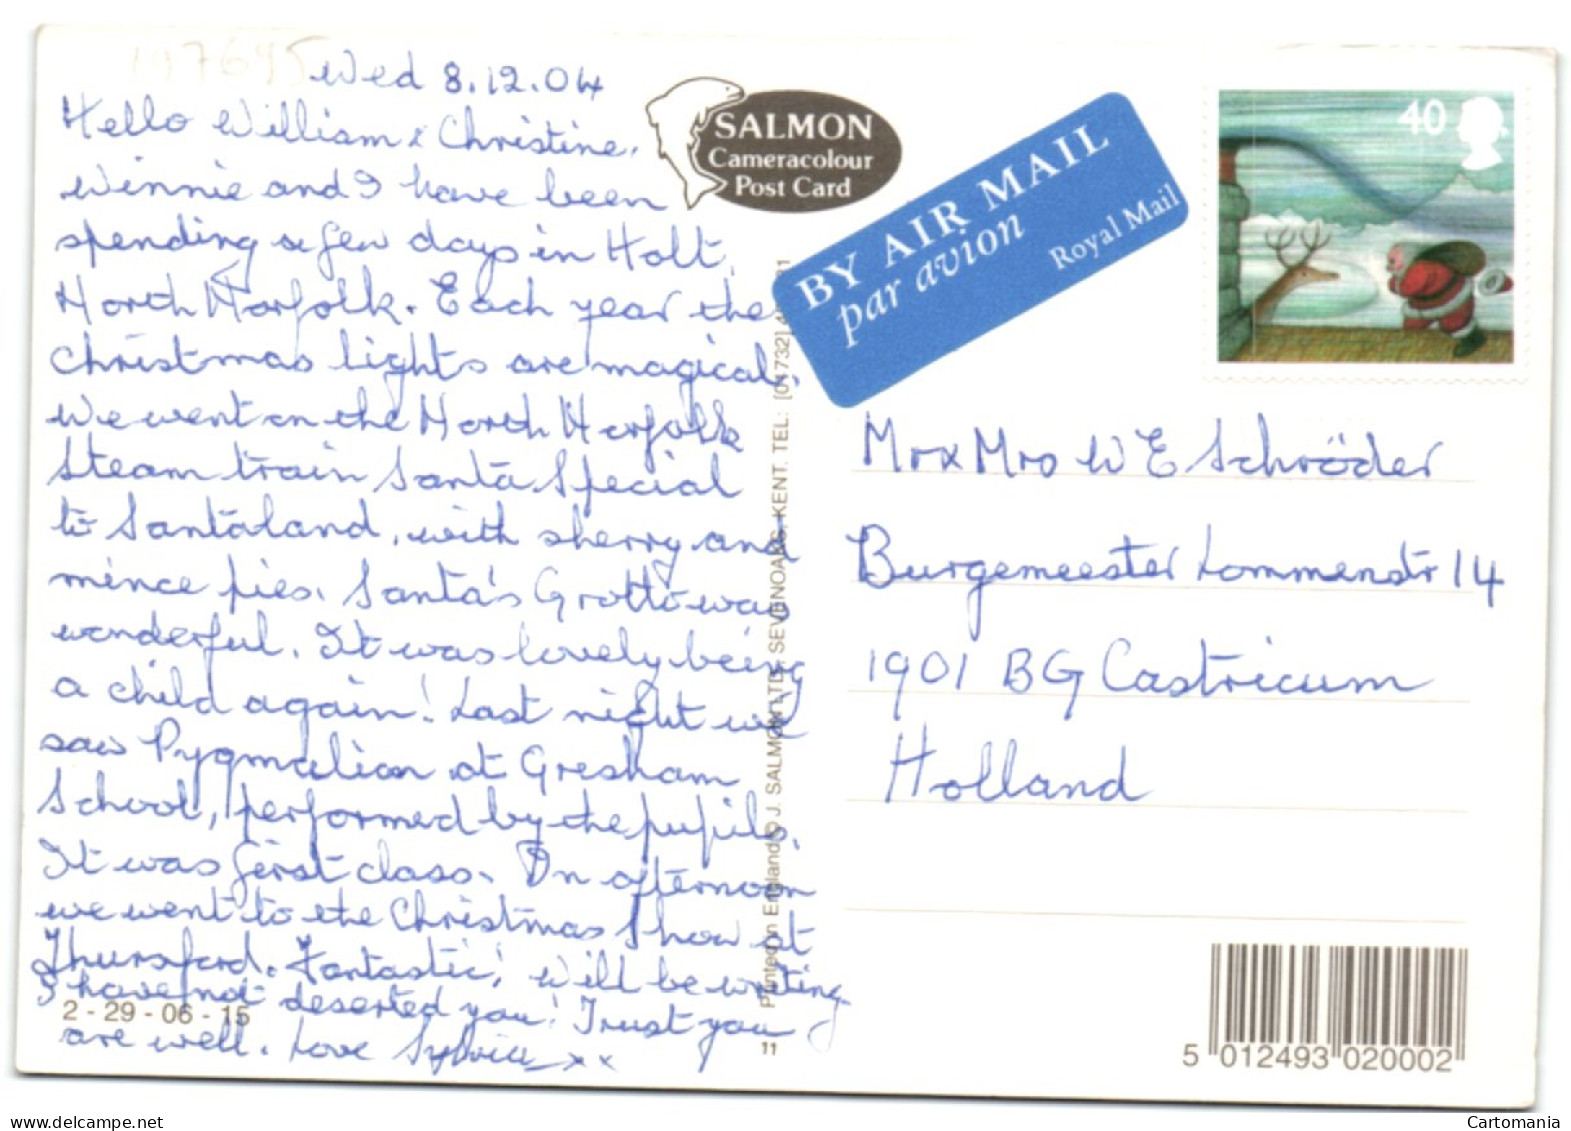 197645
Wed 8.12.04
Hello William & Christine,
Winnie and I have been
spending a few days in Holt,
North Norfolk. Each year the
christmas lights are magical.
We went on the North Norfolk
Steam train Santa Special
to Santaland, with sherry and
mince pies. Santa's Grotto was
wonderful. It was lovely being
a child again! Last night we
saw Pygmalion at Gresham
School, performed by the pupils.
It was first class. On afternoon
we went to the Christmas Show at
Thursford. Fantastic! Will be writing
I have not deserted you! Trust you
are well. Love Sylvia xx
2 - 29 - 06 - 15
SALMON
Cameracolour
Post Card
BY AIR MAIL
par avion
Royal Mail
40
Printed in England © J. SALMON LTD., SEVENOAKS, KENT. TEL: [01732]
11
Mr & Mrs W E Schröder
Burgemeester Lommenstr 14
1901 BG Castricum
Holland
5 012493 020002
www.delcampe.net
Cartomania